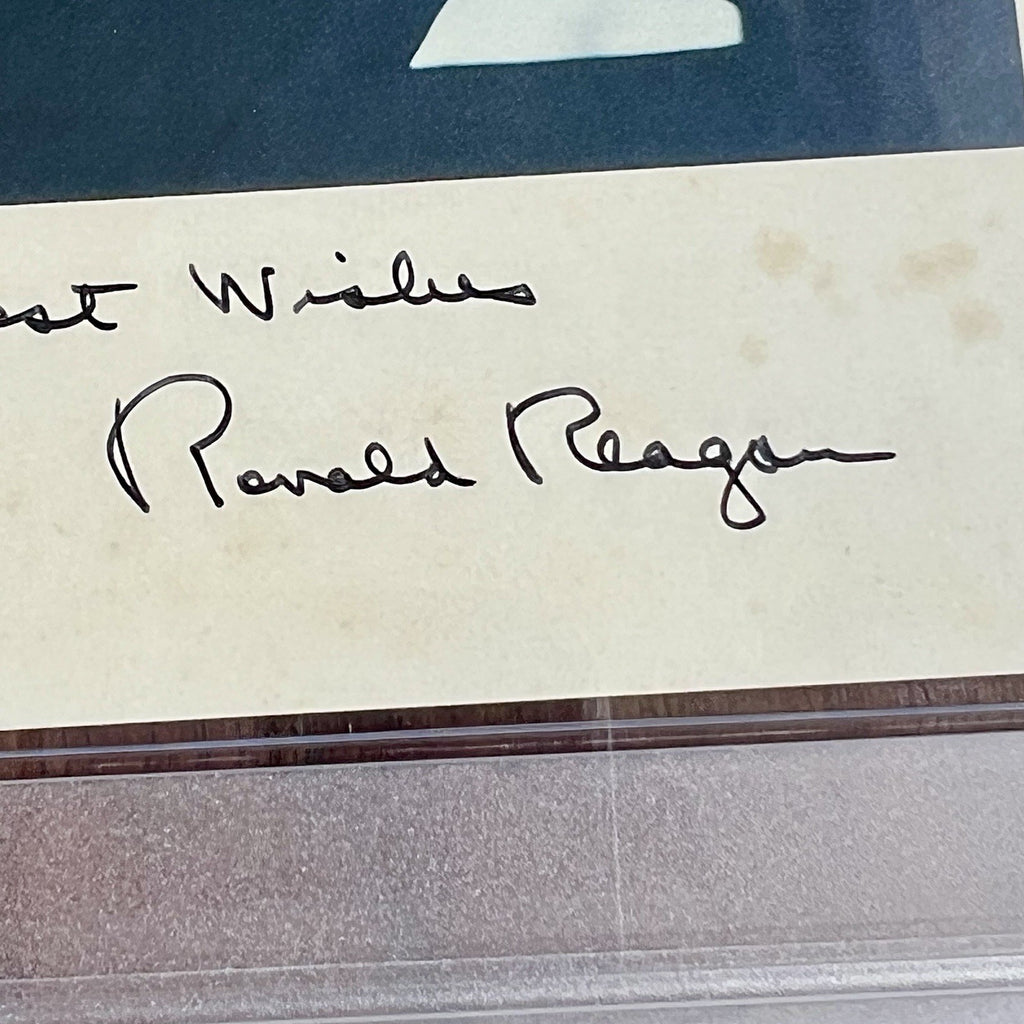 est Wishes
Ronald Reagan